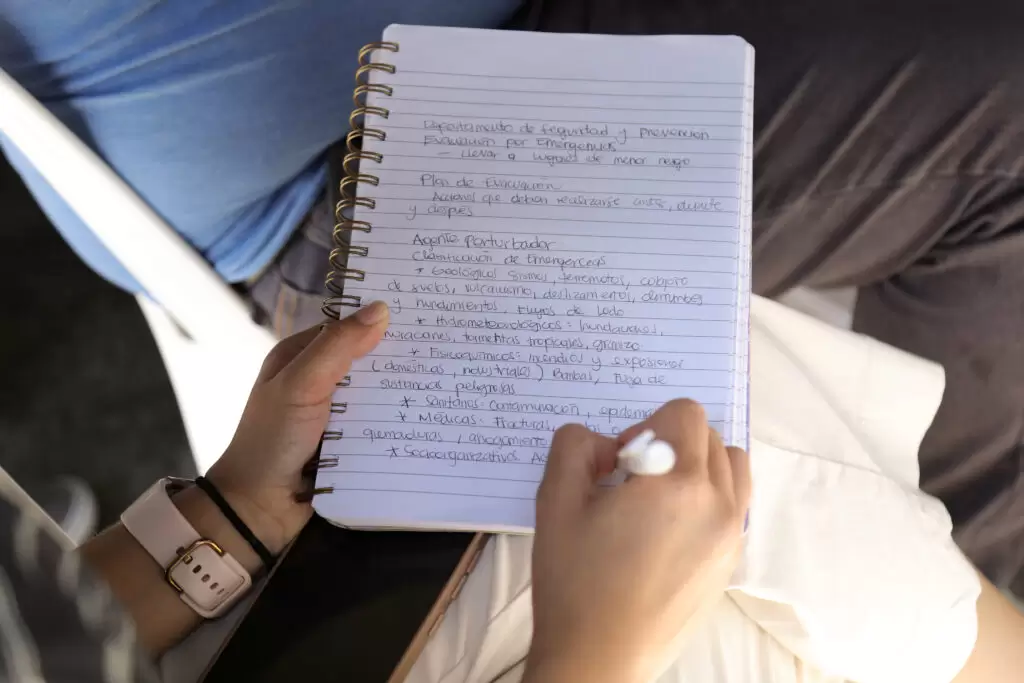 Departamento de Seguridad y Prevención
Evacuación por Emergencias
- Llevar a lugares de menor riesgo
Plan de Evacuación
Acciones que deben realizarse antes, durante
y después
Agente Perturbador
Clasificación de Emergencias
* Geológicos: Sismos, terremotos, colapso
de suelos, vulcanismo, deslizamiento, derrumbes
y hundimientos, Flujos de Lodo
* Hidrometeorológicos: Inundaciones,
huracanes, tormentas tropicales, granizo
* Fisicoquímicos: Incendios y explosiones
(domésticas, industriales) Bombas, Fuga de
sustancias peligrosas
* Sanitarios: Contaminación,
* Médicas: Fracturas,
quemaduras, ahogamiento
* Socioorganizativos: